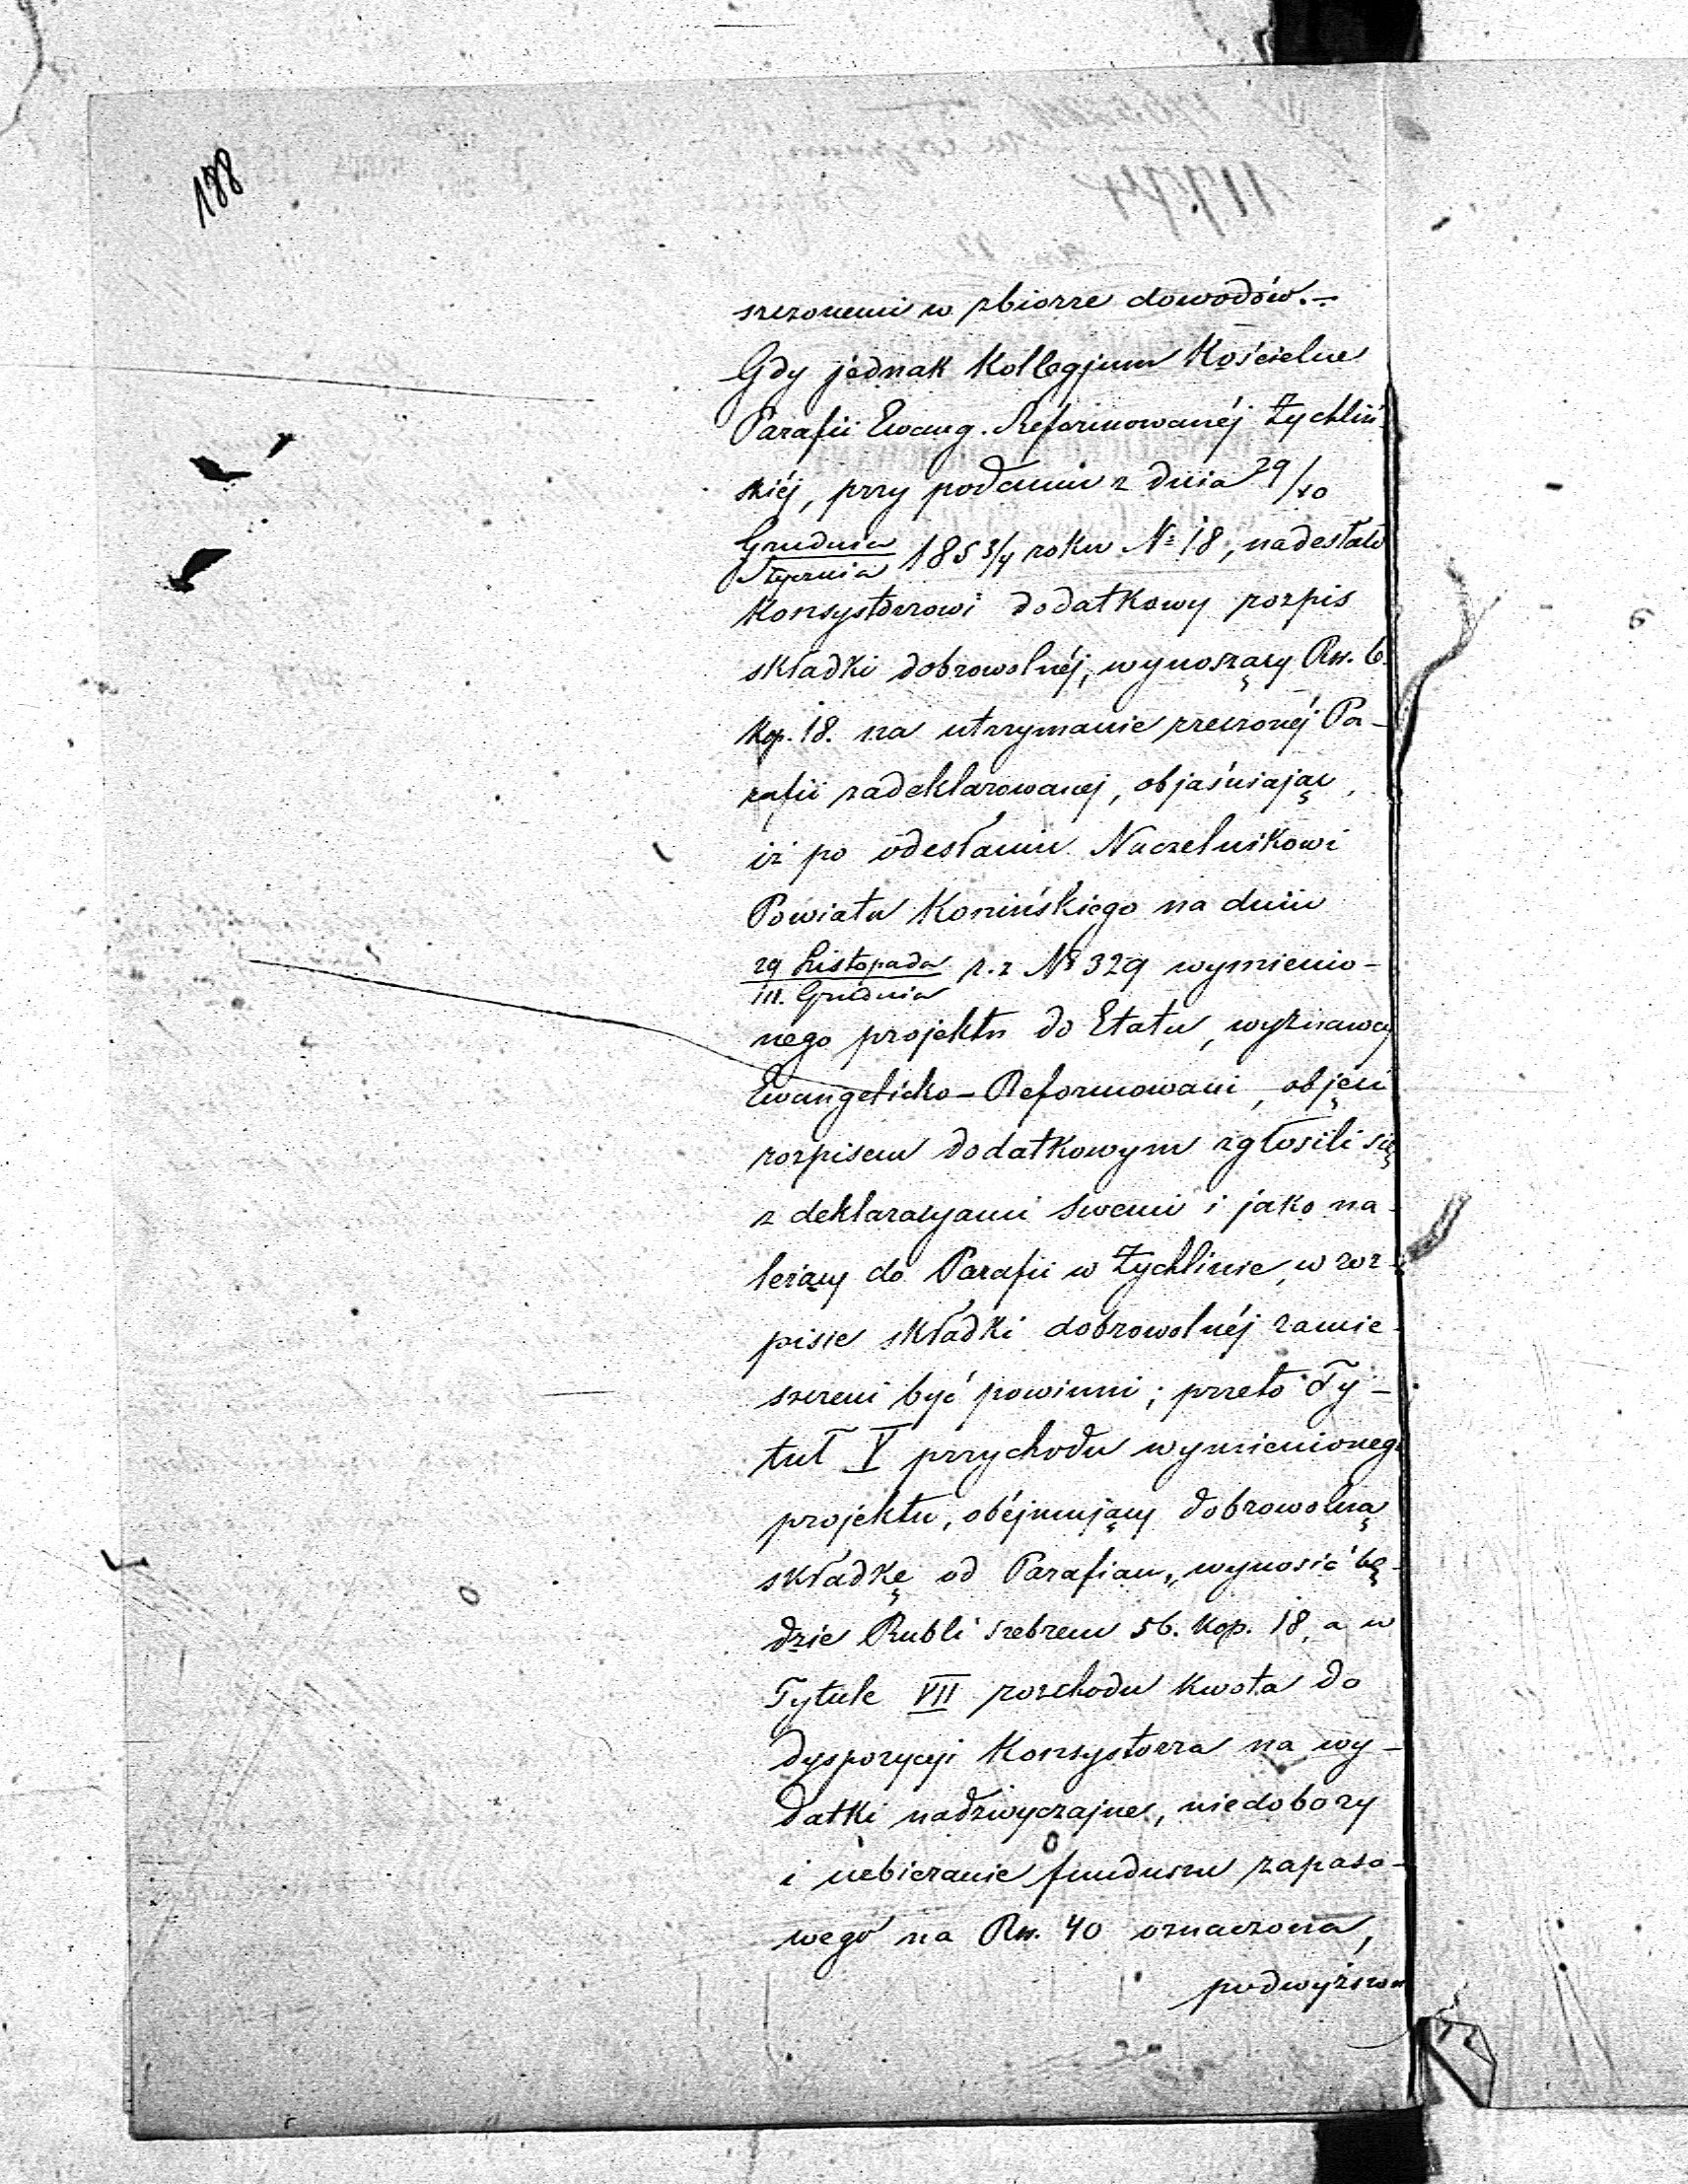 188
szczonemi w zbiorze dowodów.–
Gdy jednak Kollegjum Kościelne
Parafii Ewang. Reformowanéj Żychliń-
skiéj, przy podaniu z dnia 29/10
Grudnia/Stycznia 1853/4 roku № 18, nadesłało
Konsystorzowi dodatkowy rozpis
składki dobrowolnéj, wynoszący Rs. 6.
Kop. 18. na utrzymanie rzeczonéj Pa-
rafii zadeklarowanej, objaśniając,
iż po odesłaniu Naczelnikowi
Powiatu Konińskiego na dniu
29 Listopada/11. Grudnia r. z № 329 wymienio-
nego projektu do Etatu, wyznawcy
Ewangelicko-Reformowani, objęci
rozpisem dodatkowym zgłosili się
z deklaracyami swemi i jako na-
leżący do Parafii w Żychlinie, w roz-
pisie składki dobrowolnéj zamie-
szczeni być powinni; przeto Ty-
tuł V przychodu wymienionego
projektu, obéjmujący dobrowolną
składkę od Parafian, wynosić bę-
dzie Rubli srebrem 56. Kop. 18, a w
Tytule VII rozchodu kwota do
dyspozycyi Konsystorza na wy-
datki nadzwyczajne, niedobory
i uzbieranie funduszu zapaso-
wego na Rs. 40 oznaczona,
podwyższon